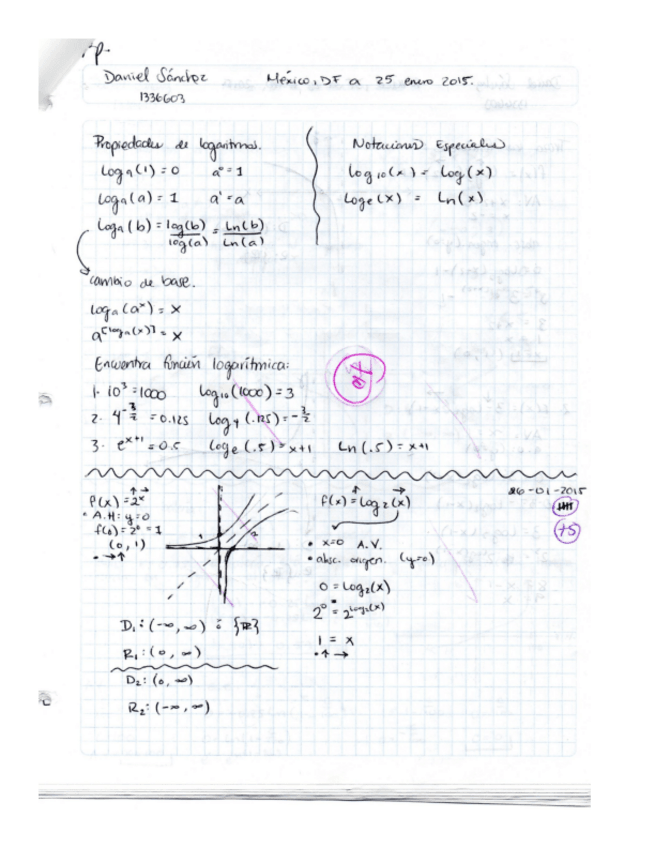 Daniel Sánchez México, DF a 25 enero 2015.
1336603
Propiedades de logaritmos.
Loga(1) = 0 a⁰ = 1
Loga(a) = 1 a¹ = a
Loga(b) = log(b)/log(a) = Ln(b)/Ln(a)
cambio de base.
loga(aˣ) = x
a^[loga(x)] = x
Notaciones Especiales
log10(x) = log(x)
Loge(x) = Ln(x)
Encuentra función logarítmica:
1. 10³ = 1000 Log10(1000) = 3
2. 4^-3/2 = 0.125 Log4(.125) = -3/2
3. e^x+1 = 0.5 Loge(.5) = x+1 Ln(.5) = x+1
26-01-2015
+5
f(x) = 2ˣ
• A.H: y=0
f(0) = 2⁰ = 1
(0, 1)
• → ↑
1 2
D1: (-∞, ∞) ó {ℝ}
R1: (0, ∞)
D2: (0, ∞)
R2: (-∞, ∞)
f(x) = Log2(x)
• x=0 A.V.
• absc. origen. (y=0)
0 = Log2(x)
2⁰ = 2^Log2(x)
1 = x
• ↑ →